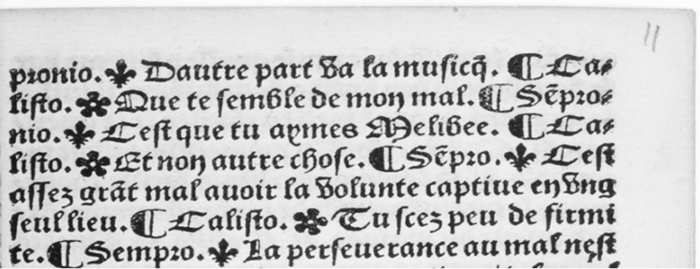 11
pronio. ⚜ Dautre part va la musicq̃. ¶ Ca⸗
listo. ✤ Que te semble de mon mal. ¶ Sẽpro⸗
nio. ⚜ Cest que tu aymes Melibee. ¶ Ca⸗
listo. ✤ Et non autre chose. ¶ Sẽpro. ⚜ Cest
assez grãt mal auoir la volunte captiue en vng
seul lieu. ¶ Calisto. ✤ Tu scez peu de firmi
te. ¶ Sempro. ⚜ La perseuerance au mal nest